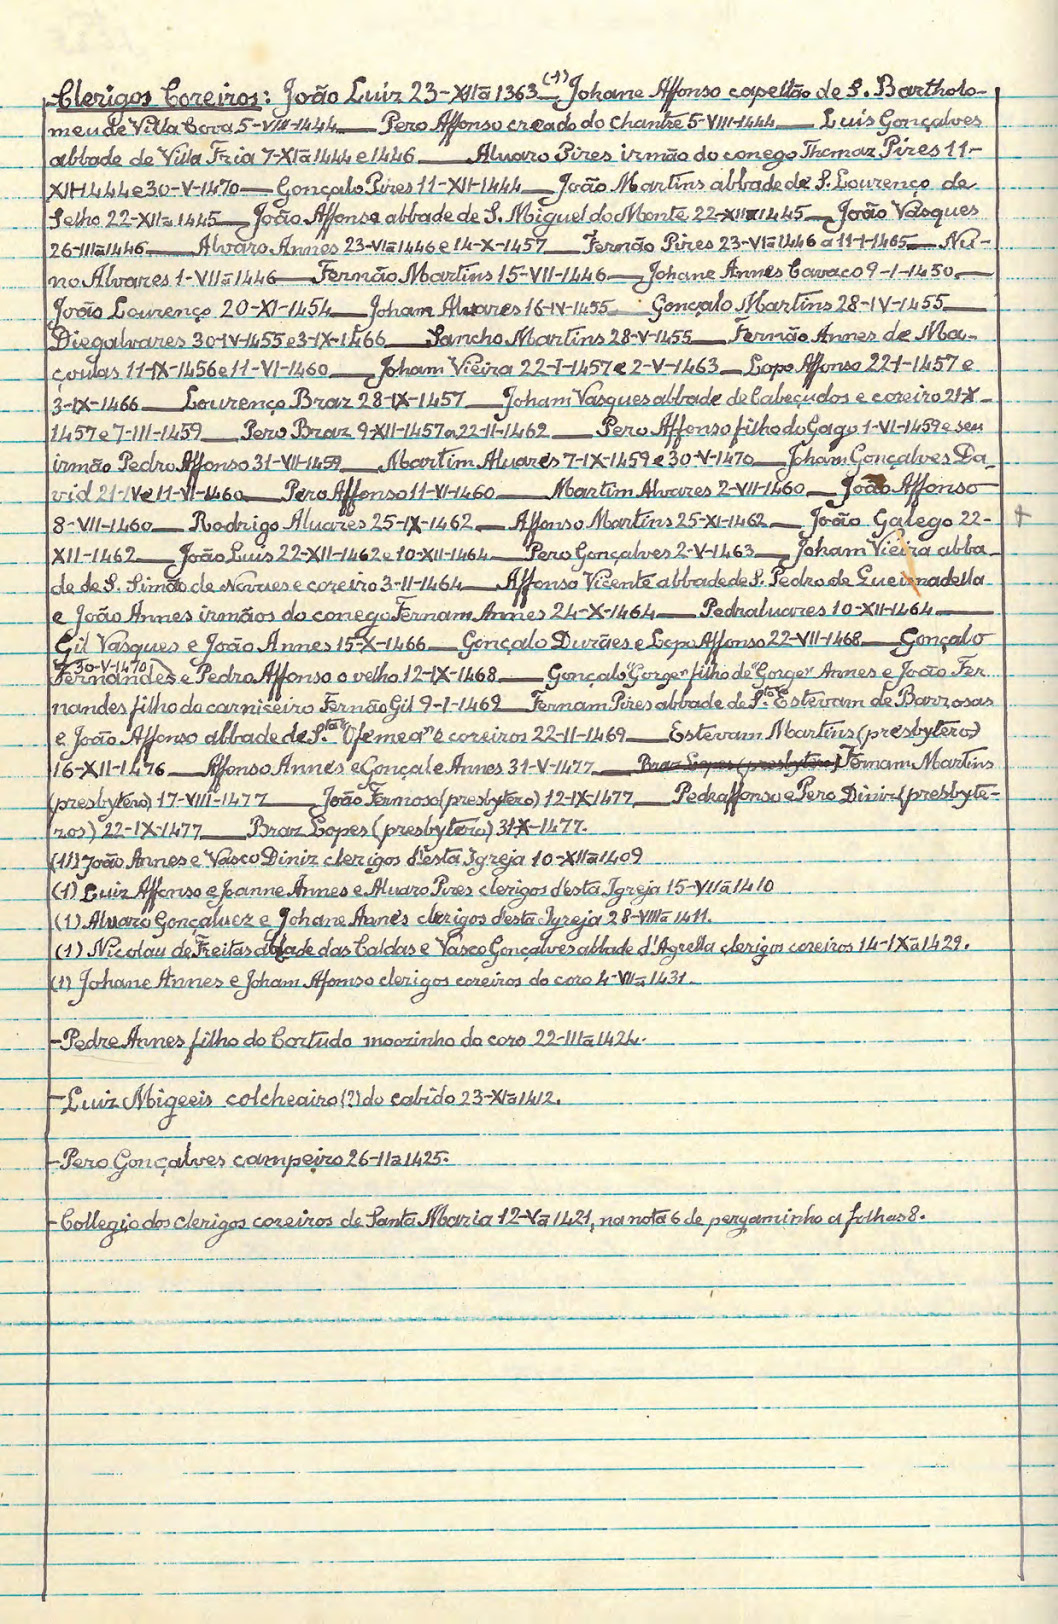 Clerigos Coreiros: João Luiz 23-XIIª1363—(1) Johane Affonso capellão de S. Bartholo-
meu de Villa Cova 5-VIII-1444 — Pero Affonso creado do Chantre 5-VIII-1444 — Luis Gonçalves
abbade de Villa Fria 7-XIª1444 e 1446 — Alvaro Pires irmão do conego Thomaz Pires 11-
XII-1444 e 30-V-1470 — Gonçalo Pires 11-XII-1444 — João Martins abbade de S. Lourenço de
Selho 22-XIIª1445 — João Affonso abbade de S. Miguel do Monte 22-XIIª1445 — João Vasques
26-IIIª1446 — Alvaro Annes 23-VIª1446 e 14-X-1457 — Fernão Pires 23-VIª1446 a 11-I-1465 — Nu-
no Alvares 1-VIIª1446 — Fernão Martins 15-VII-1446 — Johane Annes Cavaco 9-I-1450 —
João Lourenço 20-XI-1454 — Joham Alvares 16-IV-1455 — Gonçalo Martins 28-IV-1455 —
Diegalvares 30-IV-1455 e 3-IX-1466 — Sancho Martins 28-V-1455 — Fernão Annes de Ma-
çoulas 11-IX-1456 e 11-VI-1460 — Joham Vieira 22-I-1457 e 2-V-1463 — Lopo Affonso 22-I-1457 e
3-IX-1466 — Lourenço Braz 28-IX-1457 — Joham Vasques abbade de Cabeçudos e coreiro 21-X-
1457 e 7-III-1459 — Pero Braz 9-XII-1457 a 22-II-1462 — Pero Affonso filho do Gago 1-VI-1459 e seu
irmão Pedro Affonso 31-VII-1459 — Martim Alvares 7-IX-1459 e 30-V-1470 — Joham Gonçalves Da-
vid 21-IV e 11-VI-1460 — Pero Affonso 11-VI-1460 — Martim Alvares 2-VII-1460 — João Affonso
8-VII-1460 — Rodrigo Alvares 25-IX-1462 — Affonso Martins 25-XI-1462 — João Galego 22-
XII-1462 — João Luis 22-XII-1462 e 10-XII-1464 — Pero Gonçalves 2-V-1463 — Joham Vieira abba-
de de S. Simão de Novaes e coreiro 3-II-1464 — Affonso Vicente abbade de S. Pedro de
e João Annes irmãos do conego Fernam Annes 24-X-1464 — Pedralvares 10-XII-1464 —
Gil Vasques e João Annes 15-X-1466 — Gonçalo Durães e Lopo Affonso 22-VII-1468 — Gonçalo
30-V-1470
Fernandes e Pedro Affonso o velho 12-IX-1468 — Gonçalo "Gorge" filho de "Gorge" Annes e João Fer
nandes filho do carniseiro Fernão Gil 9-I-1469 — Fernam Pires abbade de S.to Estevam de Barrosas
e João Affonso abbade de S.ta "Ofemea" e coreiros 22-II-1469 — Estevam Martins (presbytero)
16-XII-1476 — Affonso Annes e Gonçale Annes 31-V-1477 — Braz Lopes (presbytero) Fernam Martins
(presbytero) 17-VIII-1477 — João Fermoso (presbytero) 12-IX-1477 — Pedraffonso e Pero Diniz (presbyte-
ros) 22-IX-1477 — Braz Lopes (presbytero) 31-X-1477.
(1) João Annes e Vasco Diniz clerigos d'esta Igreja 10-XIIª1409
(1) Luiz Affonso e Joanne Annes e Alvaro Pires clerigos desta Igreja 15-VIIª1410
(1) Alvaro Gonçaluez e Johane Annes clerigos d'esta Igreja 28-VIIIª1411.
(1) Nicolau de Freitas abbade das Caldas e Vasco Gonçalves abbade d'Agrella clerigos coreiros 14-IXª1429.
(1) Johane Annes e Joham Afomso clerigos coreiros do coro 4-VIIª1431
-Pedre Annes filho do Cortudo moozinho do coro 22-IIIª1424.
-Luiz Migeeis colcheairo (?) do cabido 23-XIª1412.
-Pero Gonçalves campeiro 26-IIª1425.
-Collegio dos clerigos coreiros de Santa Maria 12-Vª1421, na nota 6 de pergaminho a folhas 8.